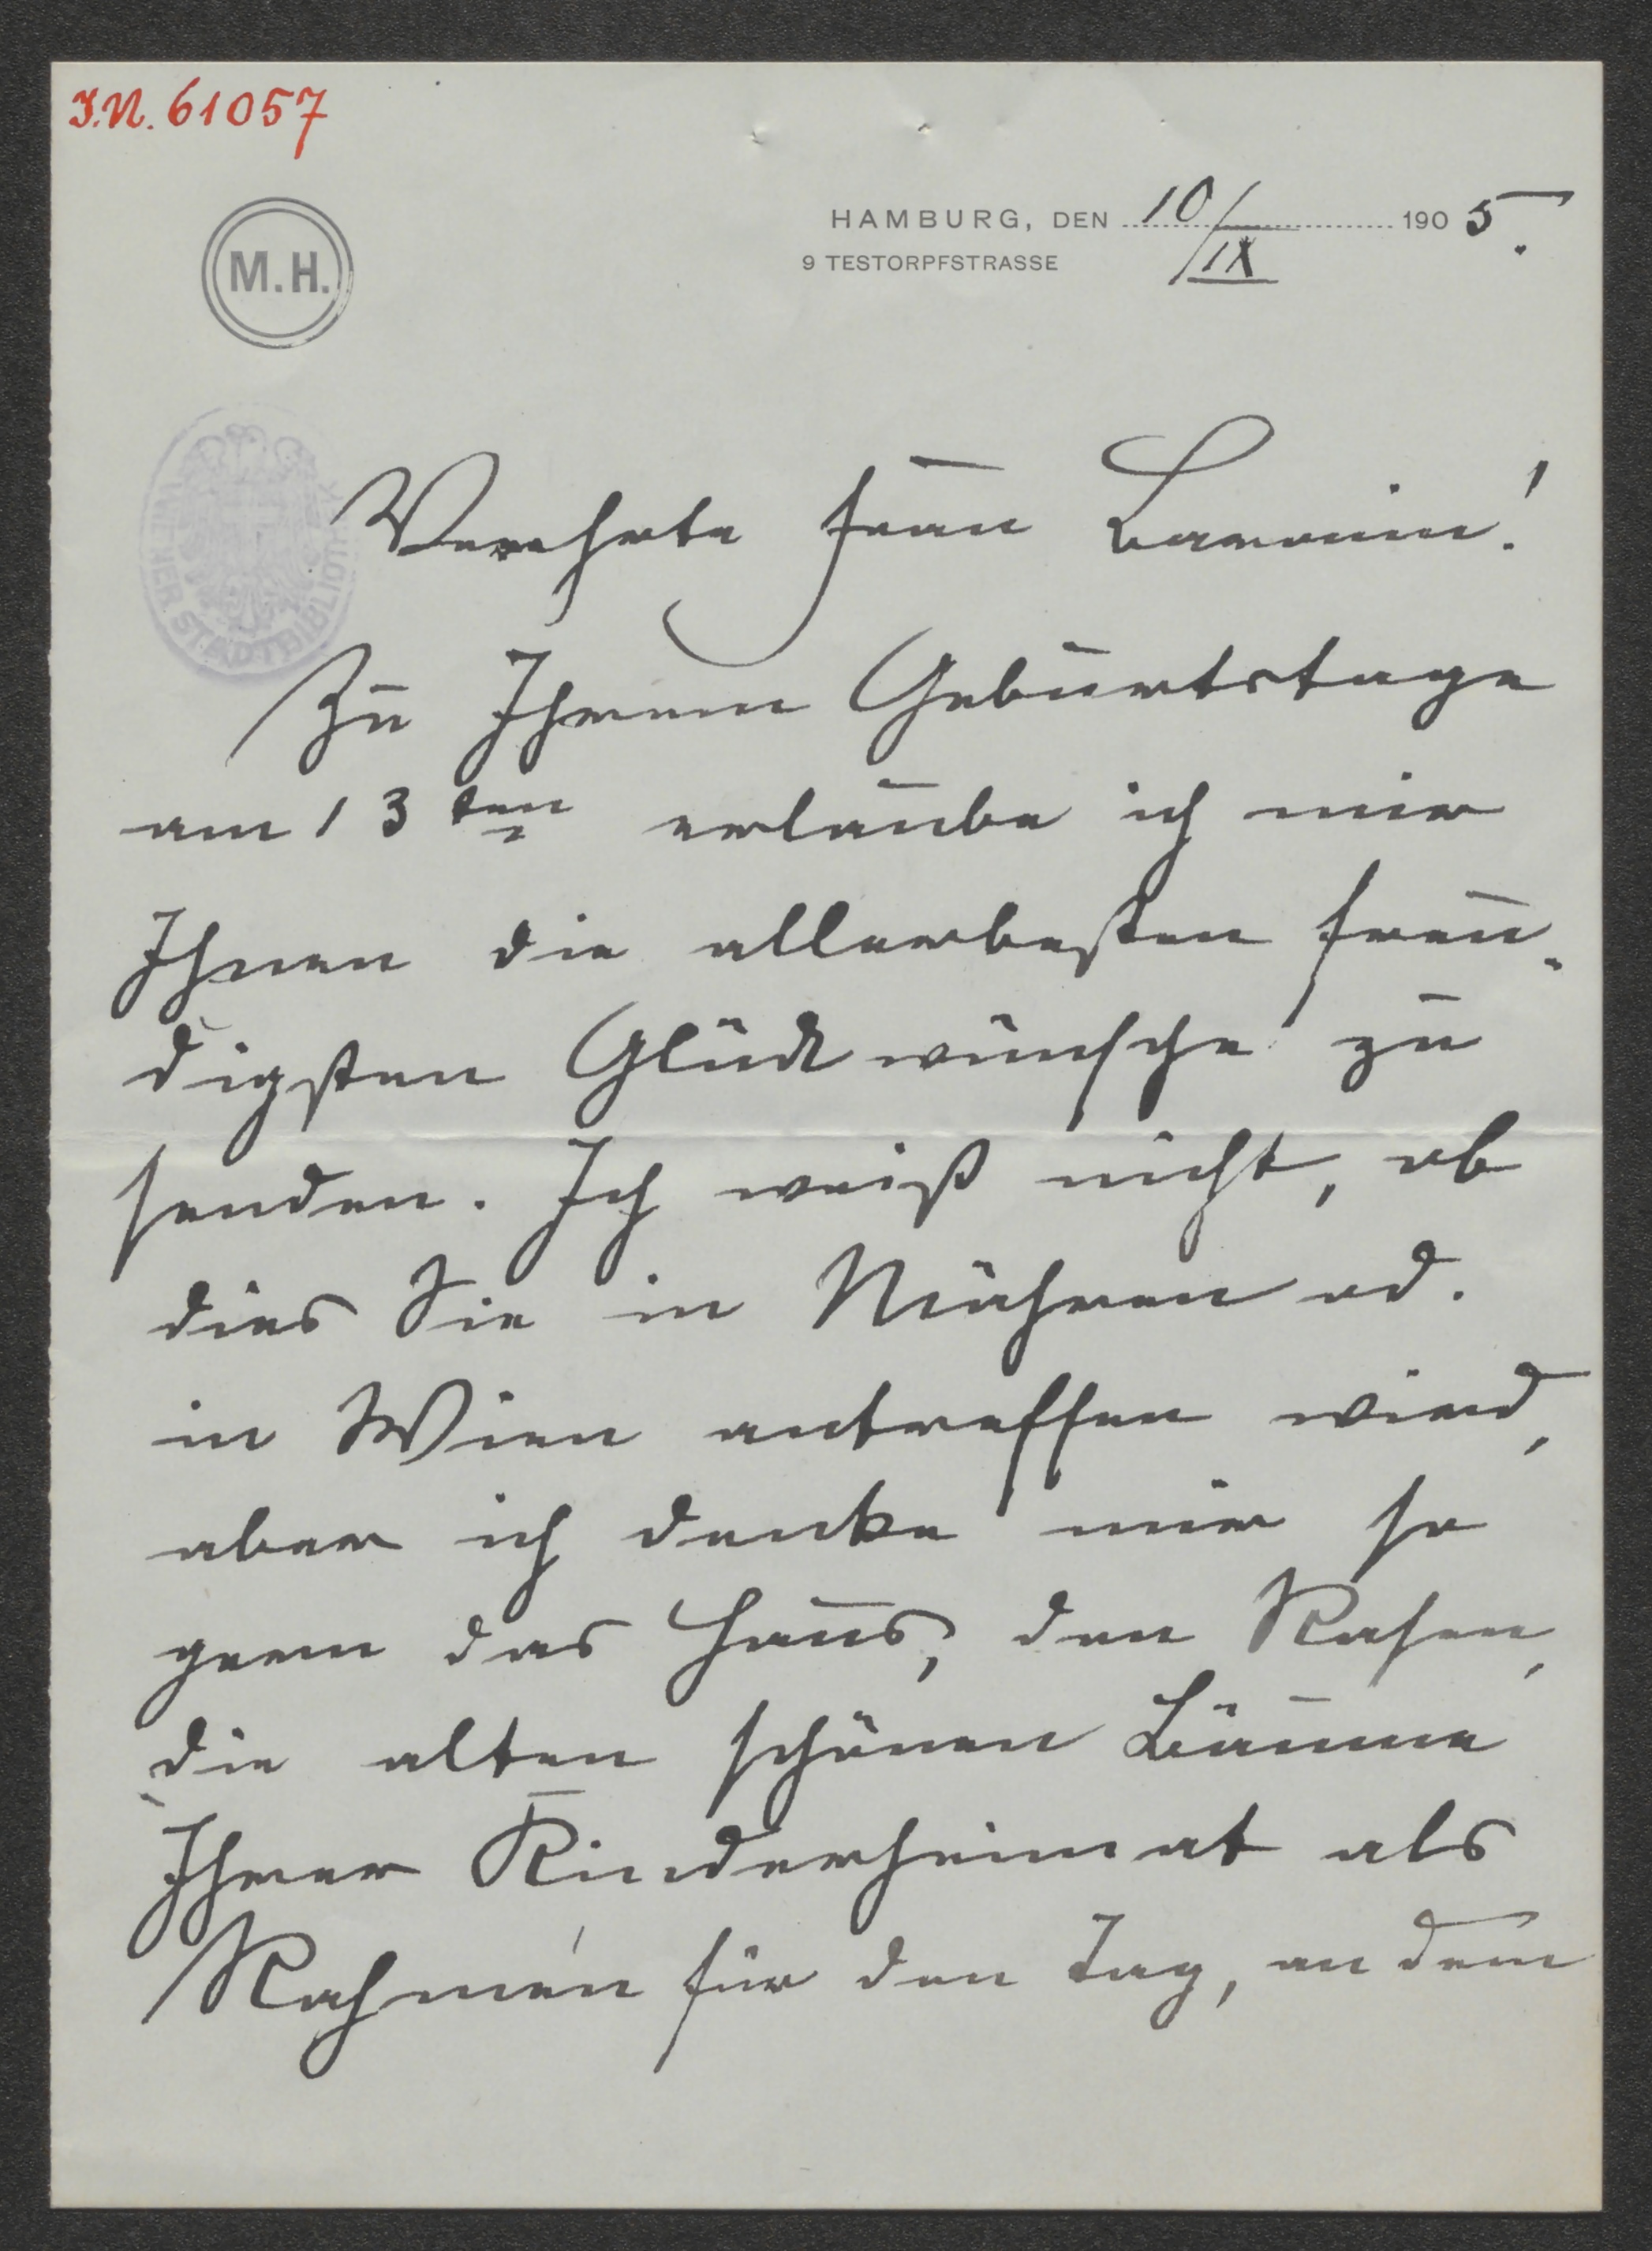 I.N. 61057
M.H.
HAMBURG, DEN 10/IX 1905.
9 TESTORPFSTRASSE
WIENER STADTBIBLIOTHEK
Verehrte Frau Baronin!
Zu Ihrem Geburtstage
am 13ten erlaube ich mir
Ihnen die allerbesten freu-
digsten Glückwünsche zu
senden. Ich weiß nicht, ob
dies Sie in Mähren od.
in Wien antreffen wird,
aber ich denke mir so
gern das Haus, den Rasen,
die alten schönen Bäume
Ihrer Kinderheimat als
Rahmen für den Tag, an dem